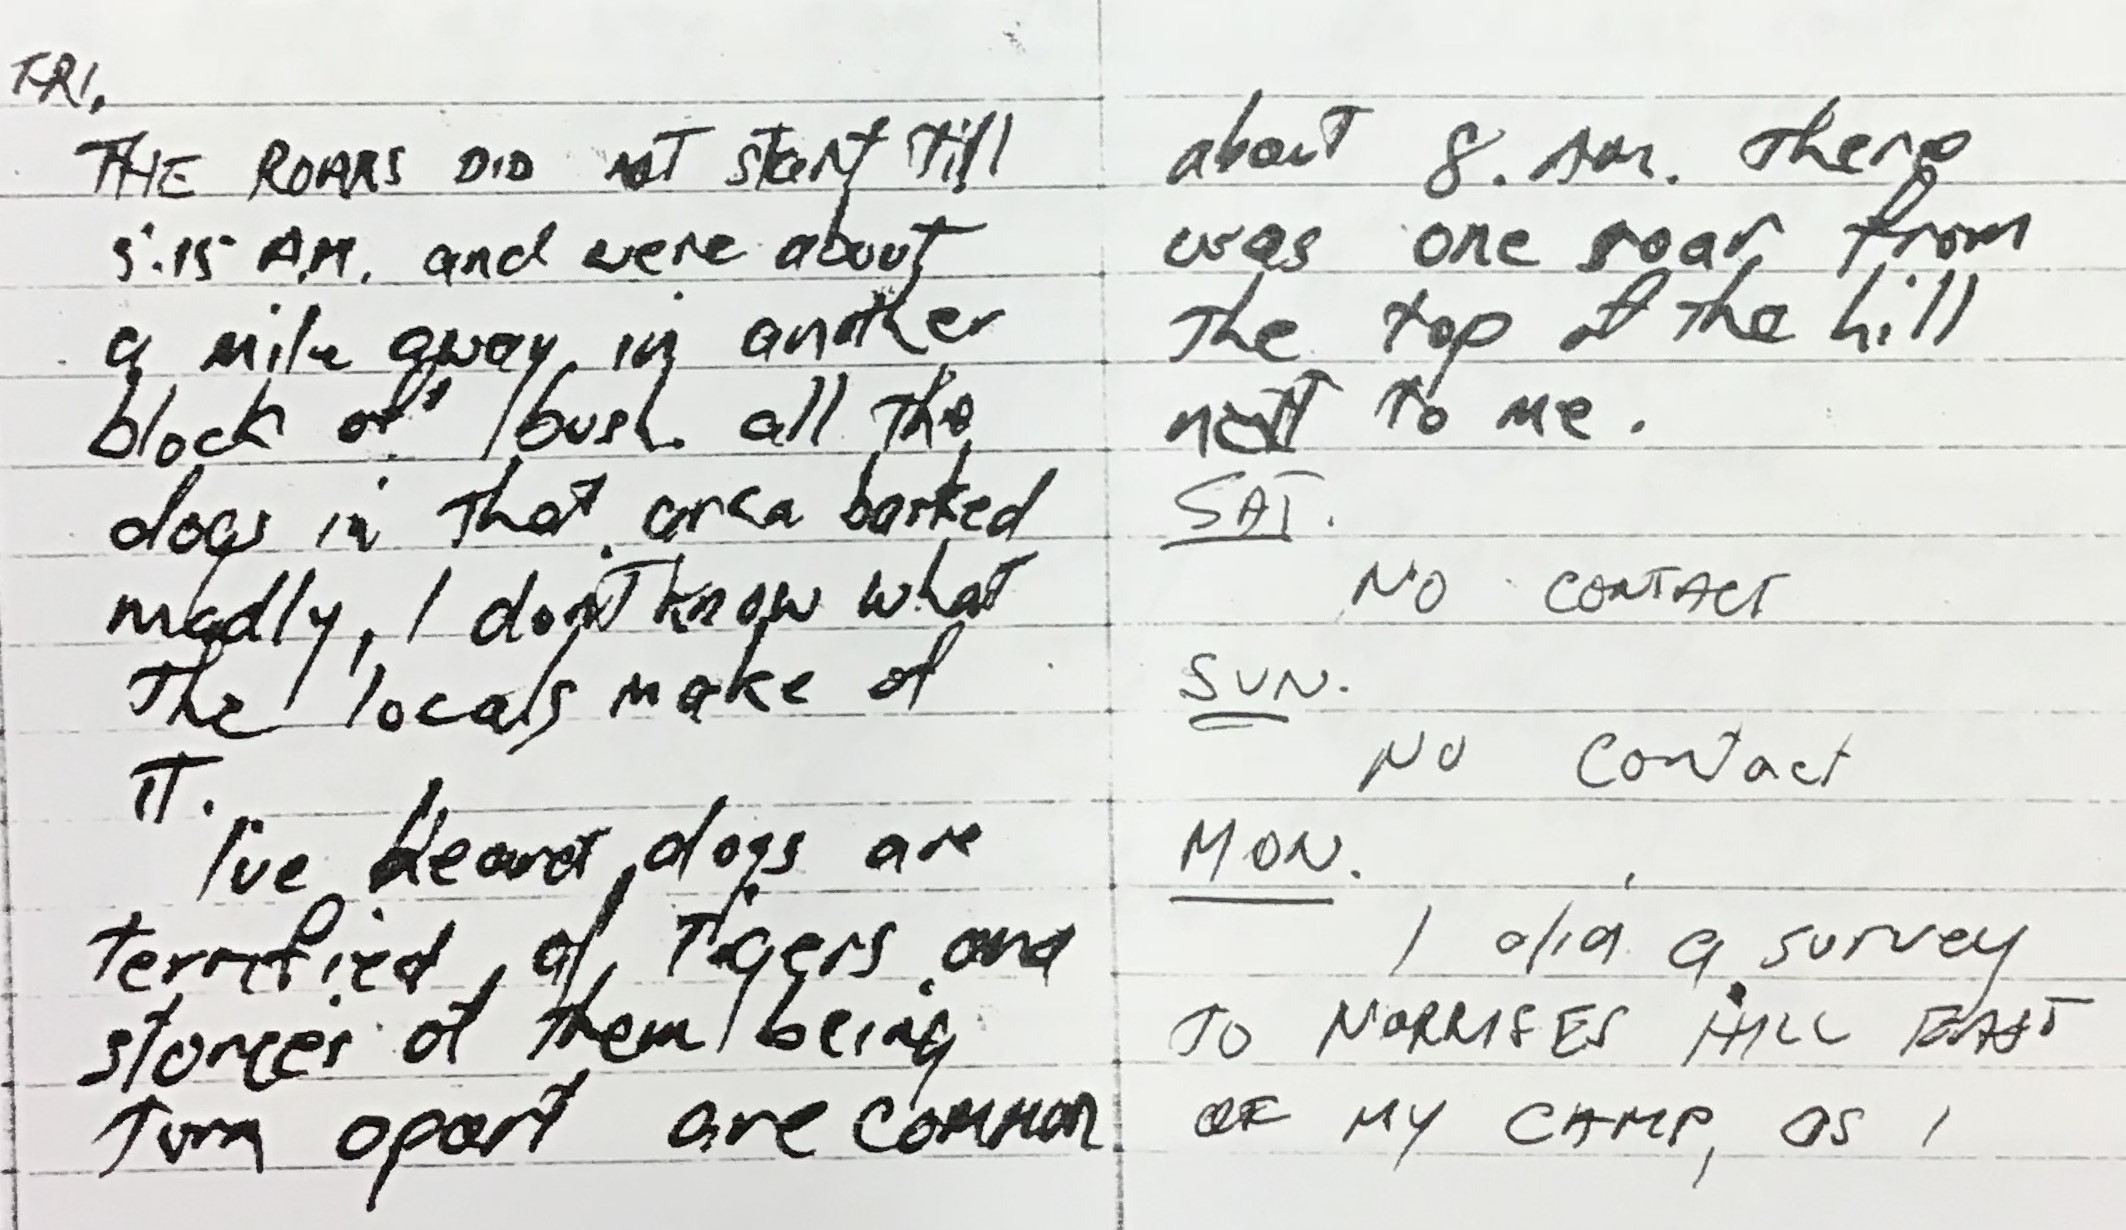 FRI,
THE ROARS DID NOT start till
5.15 A.M. and were about
a mile away in another
block of bush all the
dogs in that area barked
madly, I dont know what
the locals make of
IT.
I've heard dogs are
terrified of Tigers and
stories of them being
Torn apart are common
about 8. AM. There
was one roar from
The top of the hill
next to me.
SAT.
NO CONTACT
SUN.
NO Contact
MON.
I did a survey
TO NORRISES HILL EAST
OF MY CAMP, as I